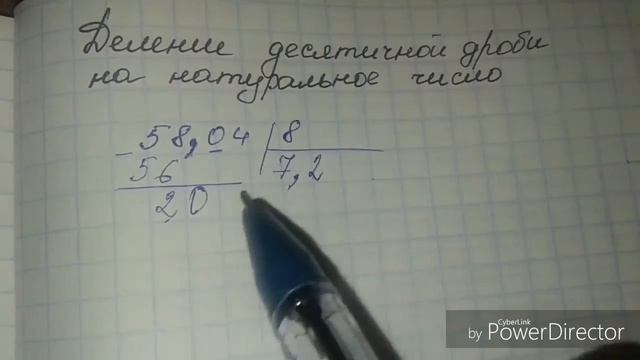 Деление десятичной дроби
на натуральное число
58,04 8
- 56 7,2
20
CyberLink
by PowerDirector